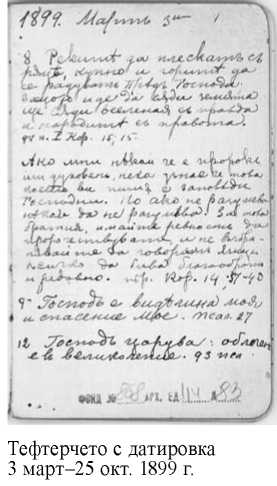 1899. Мартъ 3ий 1
8 Рекитѣ да плескатъ съ
рѫцѣ, купно и горитѣ да
се радуватъ Прѣдъ Господа
защото иде да сѫди землята
ще сѫди вселенная съ правда
и народитѣ съ правота.
98 п. I Кор. 15, 15.
Ако мни нѣкой че е пророкъ
или духовенъ, нека узнае че това
което ви пиша е заповѣди
Господни. Но ако не разумѣва
нѣкой да не разумѣва. За това
братия, имайте ревность да
пророчествувате, и не възпи-
райте да говорятъ язици
всичко да бива благообразно
и редовно. пр. Кор. 14-37-40
9 Господь е видѣлина моя
и спасение мое. псал. 27
12 Господь царува: облеченъ
е въ великолепие. 93 пса
ФОНД № 868 АРХ. ЕД. 83
Тефтерчето с датировка
3 март–25 окт. 1899 г.